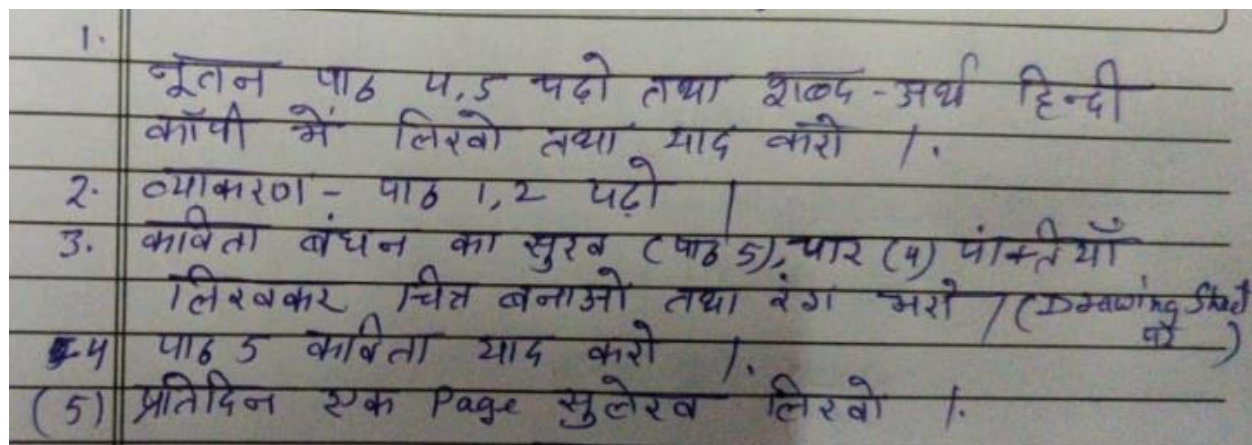 1.
नूतन पाठ 4,5 पढ़ो तथा शब्द-अर्थ हिन्दी
कॉपी में लिखो तथा याद करो ।
2. व्याकरण - पाठ 1,2 पढ़ो ।
3. कविता बंधन का सुख (पाठ 5), चार (4) पंक्तियाँ
लिखकर चित्र बनाओ तथा रंग भरो । (Drawing Sheet
पर)
4 पाठ 5 कविता याद करो ।
(5) प्रतिदिन एक Page सुलेख लिखो ।